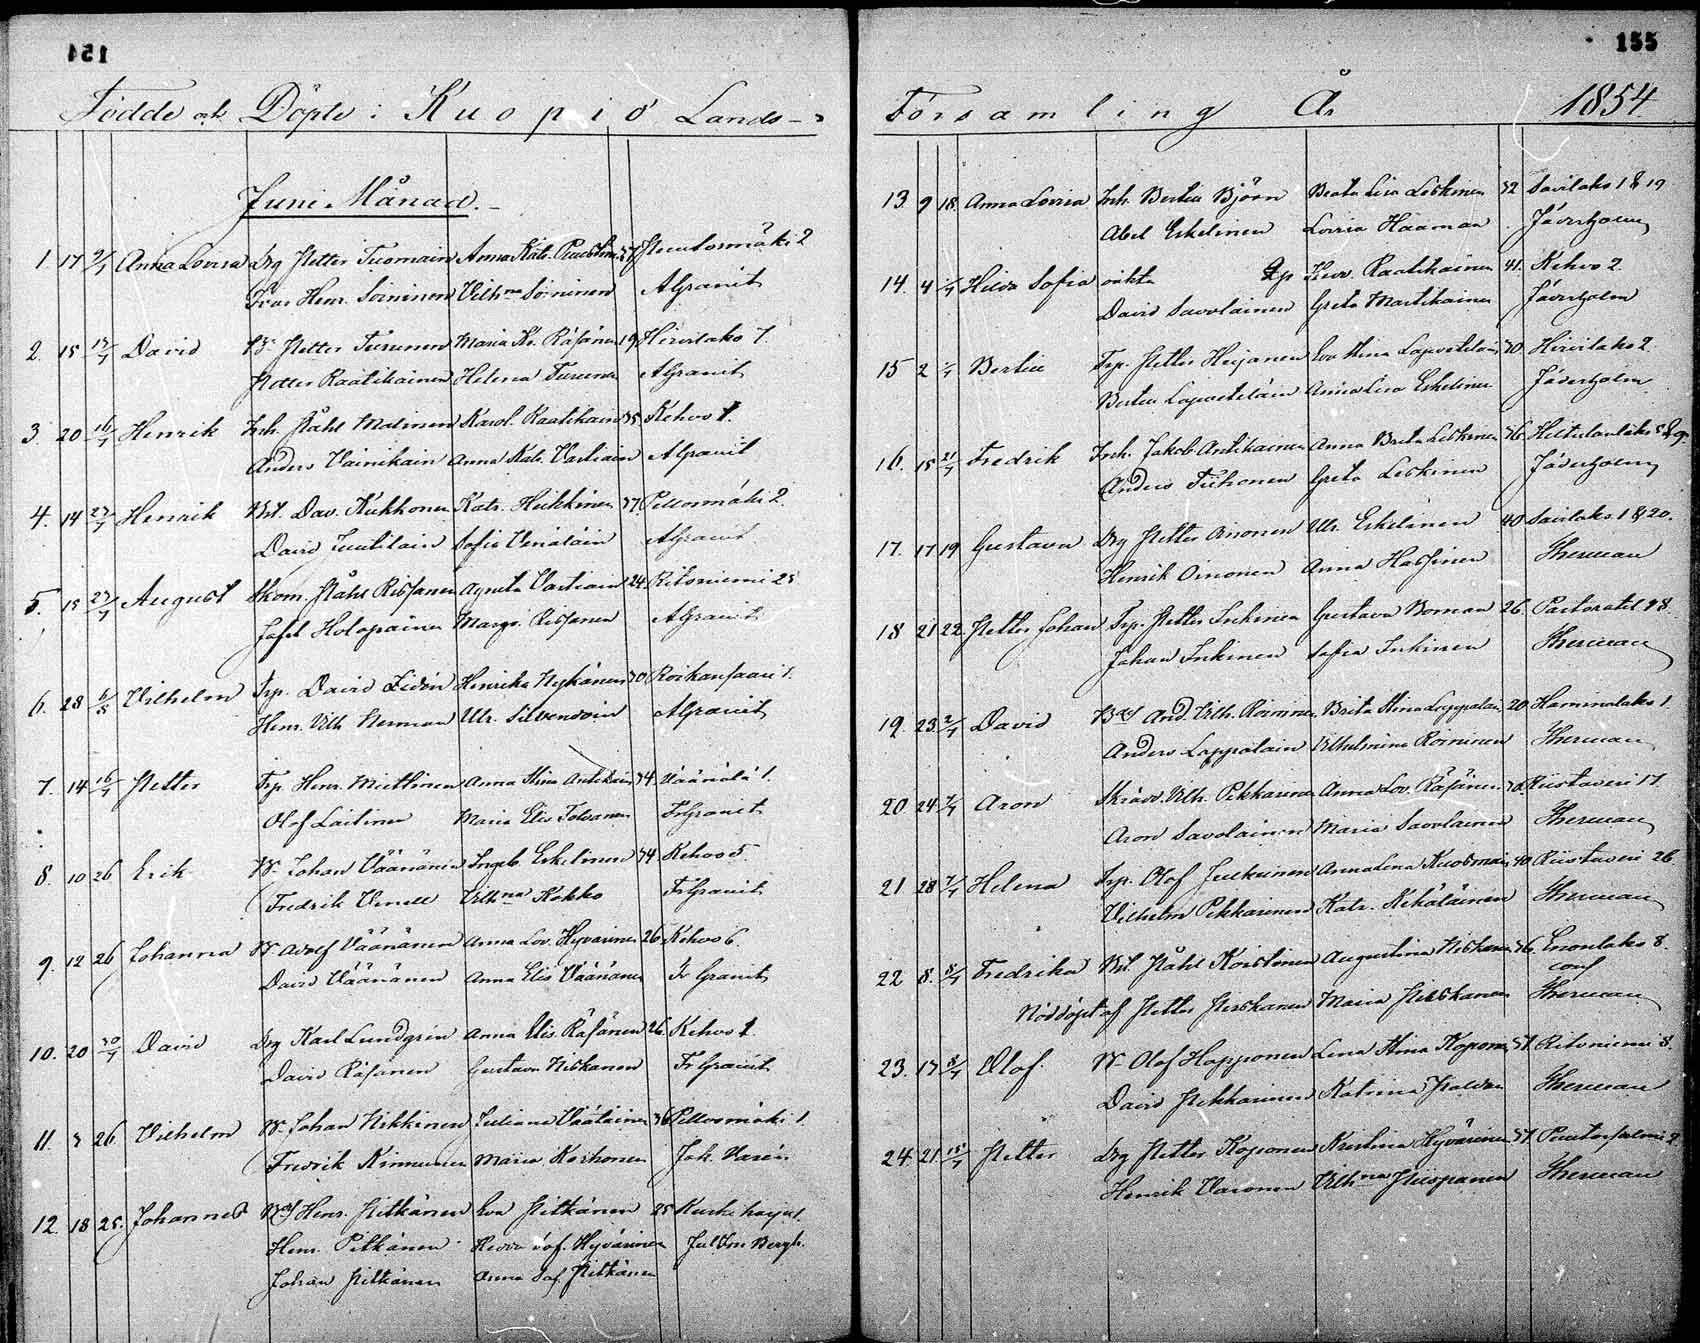 154
Födde och Döpte i Kuopio Lands-
Juni Månad.
1. 17 9/7 Anna Lovisa Drg Petter Tuomain Anna Katr. 37 2
Henr. Soininen Vilhna Soininen AGranit
2. 15 13/7 David Petter Turunen Maria Räsänen 19 Hirvilaks 7.
Petter Raatikainen Helena Turunen AGranit
3. 20 16/7 Henrik Inh. Påhl Malinen Karol. Raatikain 35 Kehvo 1.
Anders Vainikain Anna Katr. Vartiain AGranit
4. 14 23/7 Henrik Dav. Kukkonen Katr. Heikkinen 37 Pellosmäki 2.
David Sofia Venäläin AGranit
5. 15 23/7 August Skom. Påhl Rissanen Agneta Vartiain 24. Ritoniemi 25
Holopainen Marg. Rissanen AGranit
6. 28 6/8 Vilhelm Trp. David Henrika Nykänen 30 Roikansaari 1.
Henr. Vilh. Herman Ulr. Silvendoin AGranit
7. 14 16/7 Petter Trp. Henr. Miettinen Anna Stina Antikain 34. Väänälä 1.
Olof Laitinen Maria Elis FrGranit
8. 10 26 Erik Johan Väänänen Ingeb. Eskelinen 34 Kehvo 5.
Fredrik Vihna Kokko FrGranit
9. 12 26 Johanna Adolf Väänänen Anna Lov. Hyvärinen 26 Kehvo 6.
David Väänänen Anna Elis Väänänen Fr Granit
10. 20 30/7 David Drg Karl Lundgrén Anna Elis. Räsänen 26. Kehvo 1.
David Räsänen Gustava Niskanen FrGranit
11. 3 26. Vilhelm Johan Nikkinen Juliana Väätäinen 36 Pellosmäki 1
Fredrik Kinnunen Maria Korhonen Joh. Varén
12. 18 25. Johannes Henr. Pitkänen Eva Pitkänen 25 Kurkiharju 1.
Henr. Pitkänen Hedda Sof. Hyvärinen Bergh.
Johan Pitkänen Anna Sof. Pitkänen
155
Församling År 1854.
13. 9 18. Anna Lovisa Inh. Bertil Björn Beata Lisa Leskinen 32 Savilaks 1 & 19
Abel Eskelinen Lovisa Haaman Jäderholm
14. 4 Hilda Sofia oäkta Hedv. Raatikainen 41. Kehvo 2.
David Savolainen Greta Martikainen Jäderholm
15 2 Bertil Trp. Petter Heijanen Eva Stina 30 Hirvilaks 2.
Bertil Anna Lisa Eskelinen Jäderholm
16. 15 21/7 Fredrik Inh. Jakob Antikainen Anna Brita Leskinen 36
Anders Tiihonen Greta Leskinen Jäderholm
17. 17 19 Gustava Drg Petter Oinonen Ulr. Eskelinen 40 Savilaks 1 & 20.
Henrik Oinonen Anna Hassinen Therman
18 21 22. Petter Johan Trp. Petter Inkinen Gustava Boman 26 Pastoratet 98.
Johan Inkinen Sofia Inkinen Therman
19. 23. 2/7 David And. Vilh. Roininen Brita Stina Lappalain 20 Haminalaks 1.
Anders Lappalain Vilhelmina Roininen Therman
20 24 7/7 Aron Skrädd. Vilh. Pekkarinen Anna Lov. Räsänen Riistaveri 17.
Aron Savolainen Maria Savolainen Therman
21 28 7/7 Helena Trp. Olof Jeskanen Anna Lena Kuosmain 40 Riistaveri 26
Vilhelm Pekkarinen Katr. Kekäläinen Therman
22 8. 8/7 Fredrika Påhl Koistinen Augustina Niskanen 36. Enonlaks 8.
Nöddöpt af Petter Peiskanen Maria Peiskanen Therman
23. 17 8/7 Olof. Olof Happonen Lena Stina Koponen 37. Ritoniemi 8.
David Pekkarinen Katrina Therman
24. 21. 15/7 Petter Drg Petter Koponen Kristina Hyvärinen 37
Henrik Varonen Vilhna Piispanen Therman